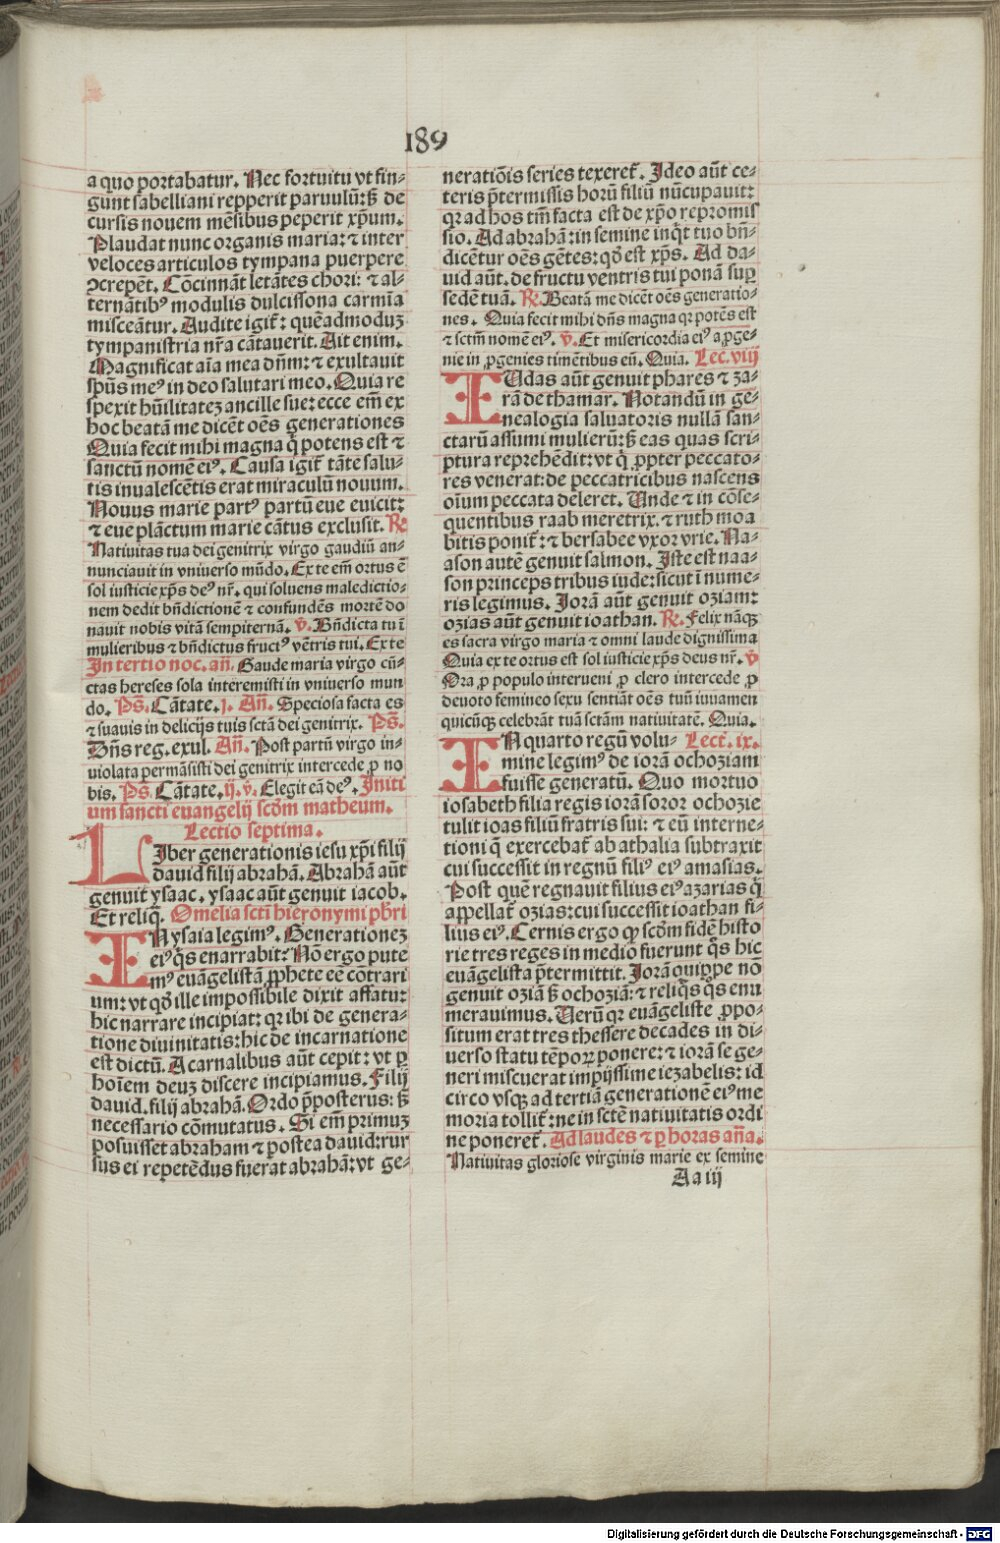 189
a quo portabatur. Nec fortuitu vt fin⸗
gunt sabelliani repperit paruulū: ꝫ de
cursis nouem mēsibus peperit xp̄um.
Plaudat nunc organis maria: ⁊ inter
veloces articulos tympana puerpere
ↄcrepēt. Cōcinnāt letātes chori: ⁊ al⸗
ternātibꝰ modulis dulcissona carmīa
misceātur. Audite igit̄: quēadmoduꝫ
tympanistria nr̄a cātauerit. Ait enim.
Magnificat aīa mea dn̄m: ⁊ exultauit
sp̄us meꝰ in deo salutari meo. Quia re
spexit hūilitateꝫ ancille sue: ecce em̄ ex
hoc beatā me dicēt oēs generationes
Quia fecit mihi magna q̇ potens est ⁊
sanctū nomē eiꝰ. Causa igit̄ tāte salu⸗
tis inualescētis erat miraculū nouum.
Nouus marie partꝰ partū eue euicit:
⁊ eue plāctum marie cātus exclusit. ℞.
Natiuitas tua dei genitrix virgo gaudiū an⸗
nunciauit in vniuerso mūdo. Ex te em̄ ortus ē
sol iusticie xp̄s deꝰ nr̄. qui soluens maledictio⸗
nem dedit bn̄dictionē ⁊ confundēs mortē do
nauit nobis vitā sempiternā. ℣. Bn̄dicta tu ī
mulieribus ⁊ bn̄dictus fructꝰ vētris tui. Ex te
In tertio noc. an̄. Gaude maria virgo cū⸗
ctas hereses sola interemisti in vniuerso mun
do. Ps̄. Cātate. j. An̄. Speciosa facta es
⁊ suauis in delicijs tuis sctā dei genitrix. Ps̄.
Dn̄s reg. exul. An̄. Post partū virgo in⸗
uiolata permāsisti dei genitrix intercede ꝓ no
bis. Ps̄. Cātate. ij. ℣. Elegit eā deꝰ. Initi
um sancti euangelij scd̄m matheum.
Lectio septima.
LIber generationis iesu xp̄i filij
dauid filij abrahā. Abrahā aūt
genuit ysaac. ysaac aūt genuit iacob.
Et reliq̄. Omelia scti hieronymi pb̄ri
IN ysaia legimꝰ. Generationeꝫ
eiꝰ q̇s enarrabit: Nō ergo pute
mꝰ euāgelistā ꝓphete eē cōtrari
um: vt qd̄ ille impossibile dixit affatu:
hic narrare incipiat: qꝛ ibi de genera⸗
tione diuinitatis: hic de incarnatione
est dictū. A carnalibus aūt cepit: vt ꝑ
hoīem deuꝫ discere incipiamus. Filij
dauid. filij abrahā. Ordo p̄posterus: ꝫ
necessario cōmutatus. Si em̄ primuꝫ
posuisset abraham ⁊ postea dauid: rur
sus ei repetēdus fuerat abrahā: vt ge⸗
neratiōis series texeret̄. Ideo aūt ce⸗
teris p̄termissis horū filiū nūcupauit:
qꝛ ad hos tm̄ facta est de xp̄o repromis
sio. Ad abrahā: in semine inq̇t tuo bn̄⸗
dicētur oēs gētes: qd̄ est xp̄s. Ad da⸗
uid aūt. de fructu ventris tui ponā suꝑ
sedē tuā. ℞. Beatā me dicēt oēs generatio⸗
nes. Quia fecit mihi dn̄s magna qꝛ potēs est
⁊ sctm̄ nomē eiꝰ. ℣. Et misericordia eiꝰ a ꝓge⸗
nie in ꝓgenies timētibus eū. Quia. Lec. viij
IUdas aūt genuit phares ⁊ za⸗
rā de thamar. Notandū in ge⸗
nealogia saluatoris nullā san⸗
ctarū assumi mulierū: ꝫ eas quas scri⸗
ptura reprehēdit: vt q̇ ꝓpter peccato⸗
res venerat: de peccatricibus nascens
oīum peccata deleret. Unde ⁊ in cōse⸗
quentibus raab meretrix. ⁊ ruth moa
bitis ponit̄: ⁊ bersabee vxor vrie. Na⸗
ason autē genuit salmon. Iste est naa⸗
son princeps tribus iude: sicut ī nume⸗
ris legimus. Iorā aūt genuit oziam:
ozias aūt genuit ioathan. ℞. Felix nāqꝫ
es sacra virgo maria ⁊ omni laude dignissima
Quia ex te ortus est sol iusticie xp̄s deus nr̄. ℣
Ora ꝓ populo interueni ꝓ clero intercede ꝓ
deuoto femineo sexu sentiāt oēs tuū iuuamen
quicūqꝫ celebrāt tuā sctām natiuitatē. Quia.
IN quarto regū volu⸗ Lect. ix.
mine legimꝰ de iorā ochoziam
fuisse generatū. Quo mortuo
iosabeth filia regis iorā soror ochozie
tulit ioas filiū fratris sui: ⁊ eū interne⸗
tioni q̄ exercebat̄ ab athalia subtraxit
cui successit in regnū filiꝰ eiꝰ amasias.
Post quē regnauit filius eiꝰ azarias q̇
appellat̄ ozias: cui successit ioathan fi⸗
lius eiꝰ. Cernis ergo ꝙ scd̄m fidē histo
rie tres reges in medio fuerunt q̇s hic
euāgelista p̄termittit. Iorā quippe nō
genuit oziā ꝫ ochoziā: ⁊ reliq̇s q̇s enu
merauimus. Uerū qꝛ euāgeliste ꝓpo⸗
situm erat tres thessere decades in di⸗
uerso statu tēpoꝝ ponere: ⁊ iorā se ge⸗
neri miscuerat impijssime iezabelis: id
circo vsqꝫ ad tertiā generationē eiꝰ me
moria tollit̄: ne in sctē natiuitatis ordi
ne poneret̄. Ad laudes ⁊ ꝑ horas an̄a.
Natiuitas gloriose virginis marie ex semine
Aa iij
Digitalisierung gefördert durch die Deutsche Forschungsgemeinschaft - DFG